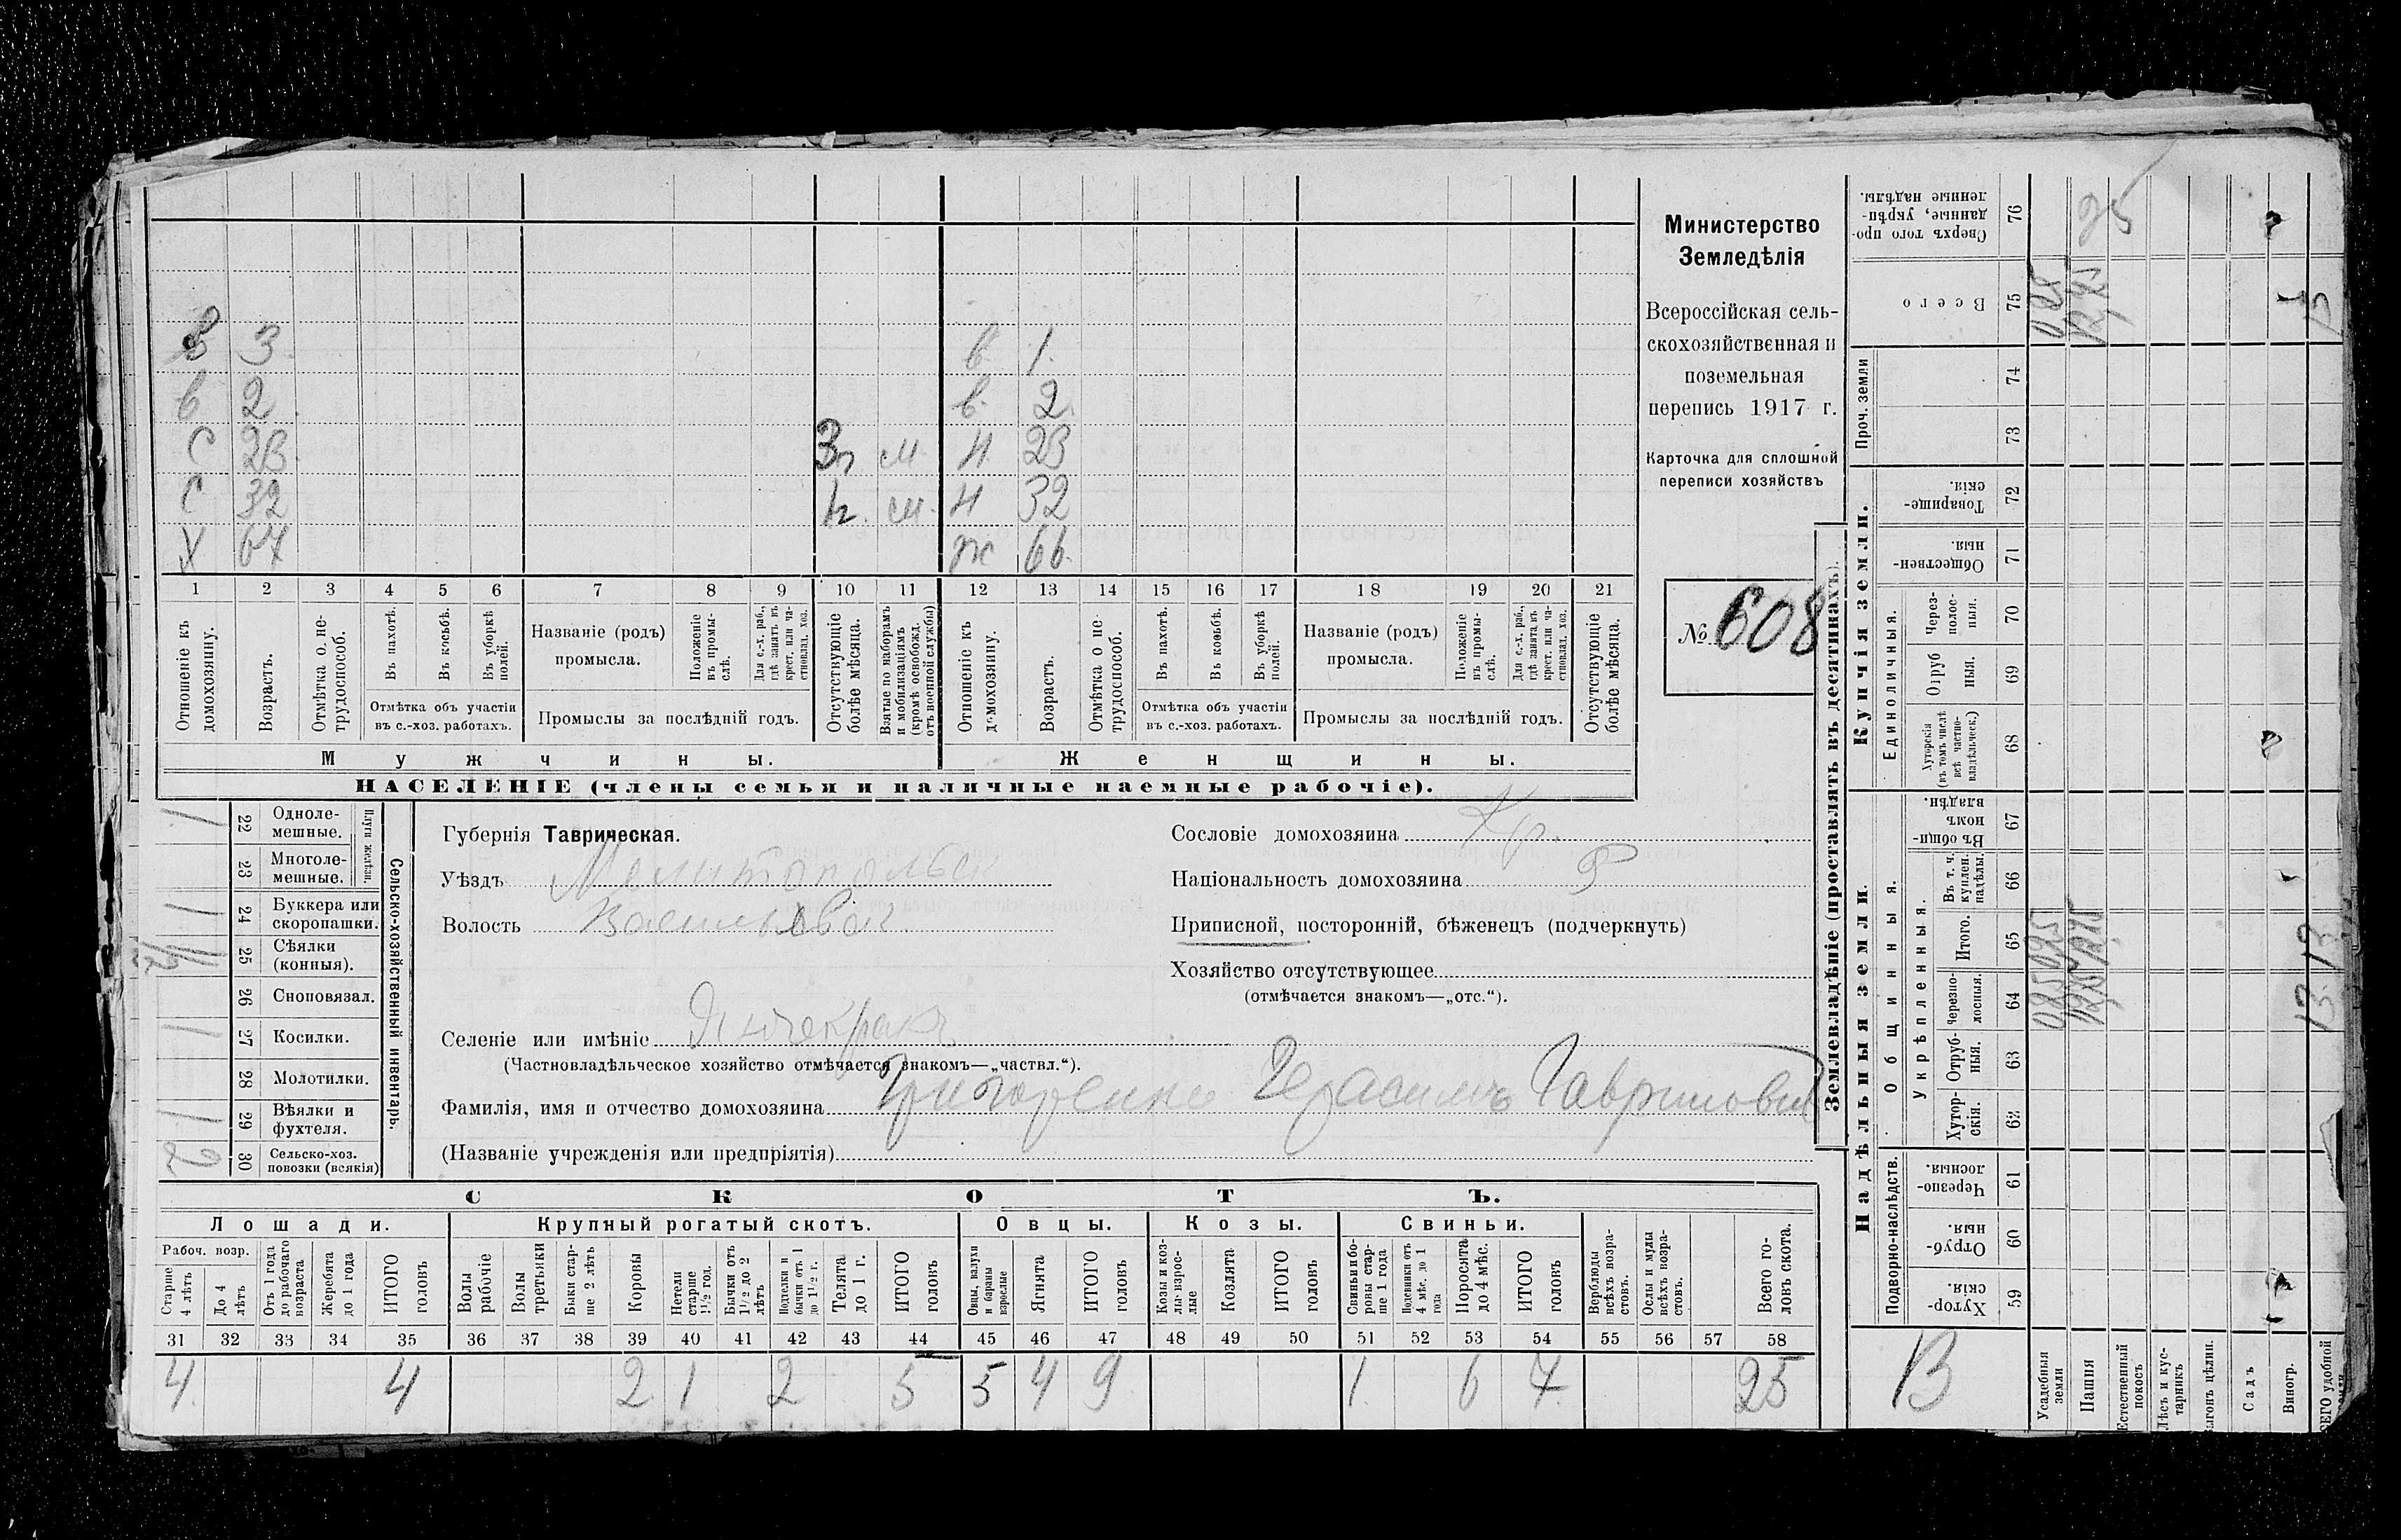 в 3 в 1
в 2 в 2
С 23 Зп м. Н 23
С 32 h. м. Н 32
Х 64 ж 66.
1 2 3 4 5 6 7 8 9 10 11 12 13 14 15 16 17 18 19 20 21
Отношеніе къ домохозяину.
Возрастъ.
Отмѣтка о не-трудоспособ.
Въ пахотѣ.
Въ косьбѣ.
Въ уборкѣ полей.
Отмѣтка объ участіи въ с.-хоз. работахъ.
Названіе (родъ) промысла.
Положеніе въ промы-слѣ.
Для с.-х. раб., гдѣ занятъ въ крест. или ча-стновлад. хоз.
Промыслы за послѣдній годъ.
Отсутствующіе болѣе мѣсяца.
Взятые по наборамъ и мобилизаціямъ (кромѣ освобожд. отъ военной службы)
Отношеніе къ домохозяину.
Возрастъ.
Отмѣтка о не-трудоспособ.
Въ пахотѣ.
Въ косьбѣ.
Въ уборкѣ полей.
Отмѣтка объ участіи въ с.-хоз. работахъ.
Названіе (родъ) промысла.
Положеніе въ промы-слѣ.
Для с.-х. раб., гдѣ занята въ крест. или ча-стновлад. хоз.
Промыслы за послѣдній годъ.
Отсутствующіе болѣе мѣсяца.
Мужчины. Женщины.
НАСЕЛЕНІЕ (члены семьи и наличные наемные рабочіе).
Министерство
Земледѣлія
Всероссійская сель-
скохозяйственная и
поземельная
перепись 1917 г.
Карточка для сплошной
переписи хозяйствъ
№ 608
Сельско-хозяйственный инвентарь.
Плуги желѣзн.
22 Одноле-мешные. 1
23 Многоле-мешные.
24 Буккера или скоропашки. 1
25 Сѣялки (конныя).
26 Сноповязал.
27 Косилки. 1
28 Молотилки.
29 Вѣялки и фухтеля. 1
30 Сельско-хоз. повозки (всякія) 2
Губернія Таврическая.
Уѣздъ Мелитопольск
Волость Васильевск
Селеніе или имѣніе Янчекракъ
(Частновладѣльческое хозяйство отмѣчается знакомъ—„частвл.“).
Фамилія, имя и отчество домохозяина Григоренко Герасимъ Гавриловъ
(Названіе учрежденія или предпріятія)
Сословіе домохозяина Кр.
Національность домохозяина
Приписной, посторонній, бѣженецъ (подчеркнуть)
Хозяйство отсутствующее
(отмѣчается знакомъ—„отс.“).
СКОТЪ.
Лошади. Крупный рогатый скотъ. Овцы. Козы. Свиньи.
Рабоч. возр.
Старше 4 лѣтъ
До 4 лѣтъ
Отъ 1 года до рабочаго возраста
Жеребята до 1 года
ИТОГО головъ
Волы рабочіе
Волы третьяки
Быки стар-ше 2 лѣтъ
Коровы
Нетели старше 1½ год.
Бычки отъ 1½ до 2 лѣтъ
Подтелки и бычки отъ 1 до 1½ г.
Телята до 1 г.
ИТОГО головъ
Овцы, валухи и бараны взрослые
Ягнята
ИТОГО головъ
Козы и коз-лы взрос-лые
Козлята
ИТОГО головъ
Свиньи и бо-ровы стар-ше 1 года
Подсвинки отъ 4 мѣс. до 1 года
Поросята до 4 мѣс.
ИТОГО головъ
Верблюды всѣхъ возра-стовъ.
Ослы и мулы всѣхъ возра-стовъ.
Всего го-ловъ скота.
31 32 33 34 35 36 37 38 39 40 41 42 43 44 45 46 47 48 49 50 51 52 53 54 55 56 57 58
4. 4 2 1 2 5 5 4 9 1. 6 7. 25
Землевладѣніе (проставлять въ десятинахъ).
Купчія земли.
Надѣльныя земли.
Сверхъ того про-данные, укрѣп-ленные надѣлы. 76 25
Всего 75
Проч. земли
74
73
Товарище-скія. 72
Обществен-ныя. 71
Единоличныя.
Через-полос-ныя. 70
Отруб-ныя. 69
Хуторскія (въ томъ числѣ всѣ частно-владѣльческ.) 68
Общинныя.
Въ общин-номъ владѣн. 67
Укрѣпленныя.
Въ т. ч. куплен. надѣлы. 66
Итого. 65
Черезпо-лосныя. 64
Отруб-ныя. 63
Хутор-скія. 62
Подворно-наслѣдств.
Черезпо-лосныя. 61
Отруб-ныя. 60
Хутор-скія. 59
В
Усадебныя земли
Пашня
Естественный покосъ
Лѣсъ и кус-тарникъ
Выгонъ цѣлин.
Садъ
Виногр.
ВСЕГО удобной земли
13. 13